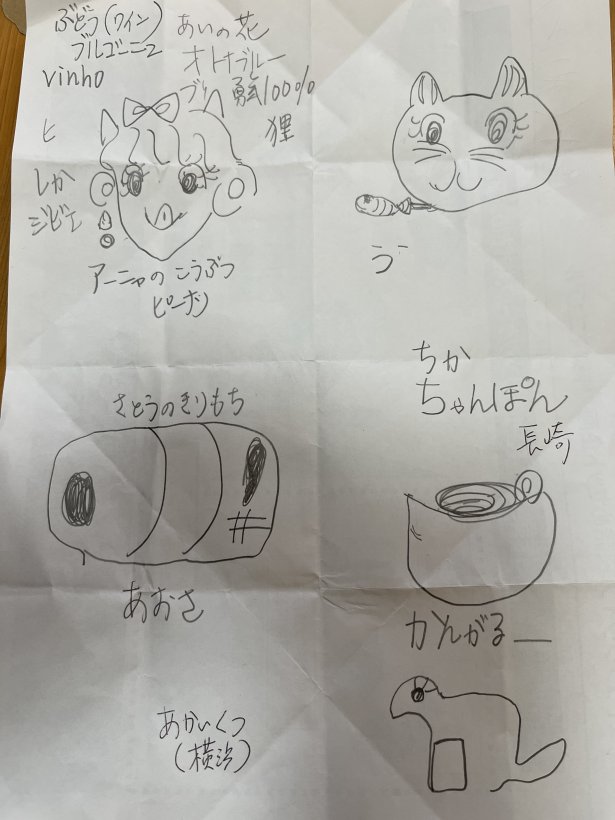 ぶどう(ワイン)
ブルゴーニュ
vinho
あいの花
オトナブルー
ブリ
勇気100%
狸
ヒ
しか
ジビエ
アーニャの こうぶつ
ピーナツ
う
さとうのきりもち
井
あおさ
ちか
ちゃんぽん
長崎
かんがるー
あかいくつ
(横浜)